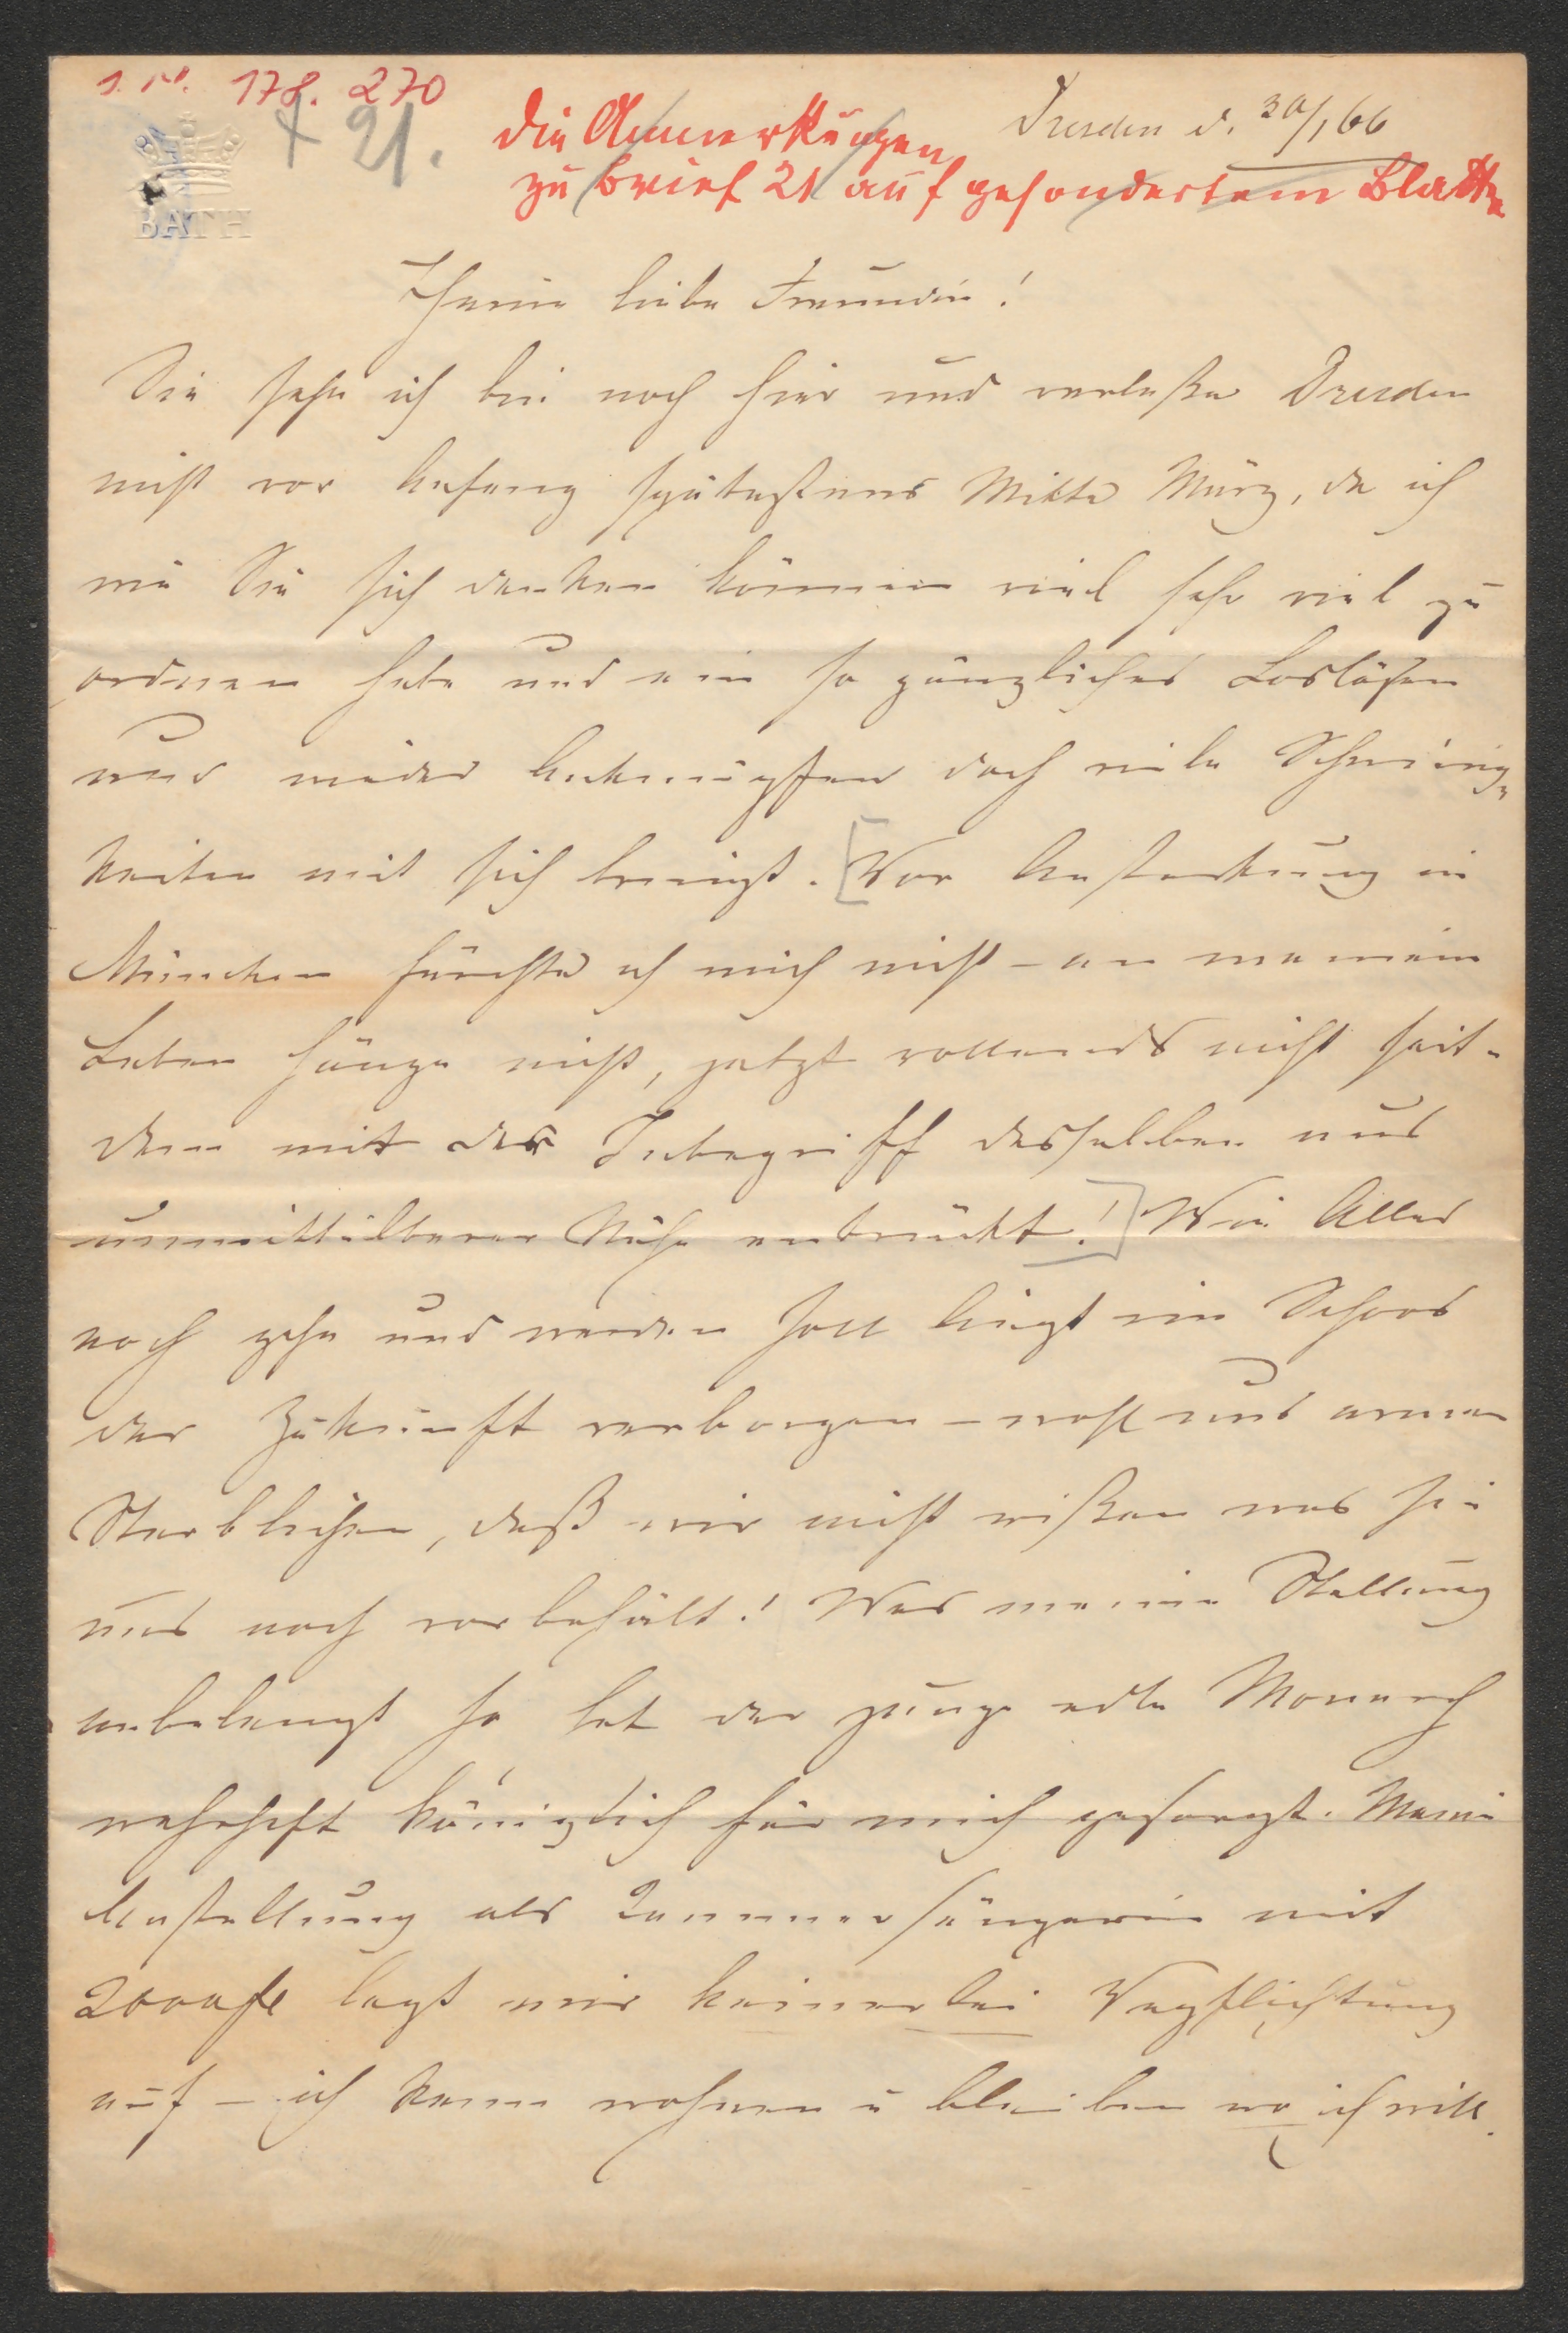 178. 270
+ 21.
Die Anmerkungen
zu Brief 21 auf gesondertem Blatte
Dresden d. 30/1 66
BATH
Theure liebe Freundin!
Sie sehn ich bin noch hier und verlaße Dresden
nicht vor Anfang spätestens Mitte März, da ich
wie Sie sich denken können viel sehr viel zu
ordnen habe und ein so gänzliches Loslösen
und wieder Anknüpfen doch viele Schwierig-
keiten mit sich bringt. [Vor Ansteckung in
München fürchte ich mich nicht – an mein
Leben hänge nicht, jetzt vollends nicht seit-
dem mit der Inbegriff desselben aus
unmittelbarer Nähe entrückt!] Wie Alles
noch gehn und werden soll liegt im Schoos
der Zukunft verborgen – wohl uns armen
Sterblichen, daß wir nicht wißen was sie
uns noch vorbehält! Was meine Stellung
anbelangt so hat der junge edle Monarch
wahrhaft königlich für mich gesorgt. Meine
Anstellung als Kammersängerin mit
2000 fl legt mir keinerlei Verpflichtung
auf – ich kann wohnen u bleiben wo ich will.